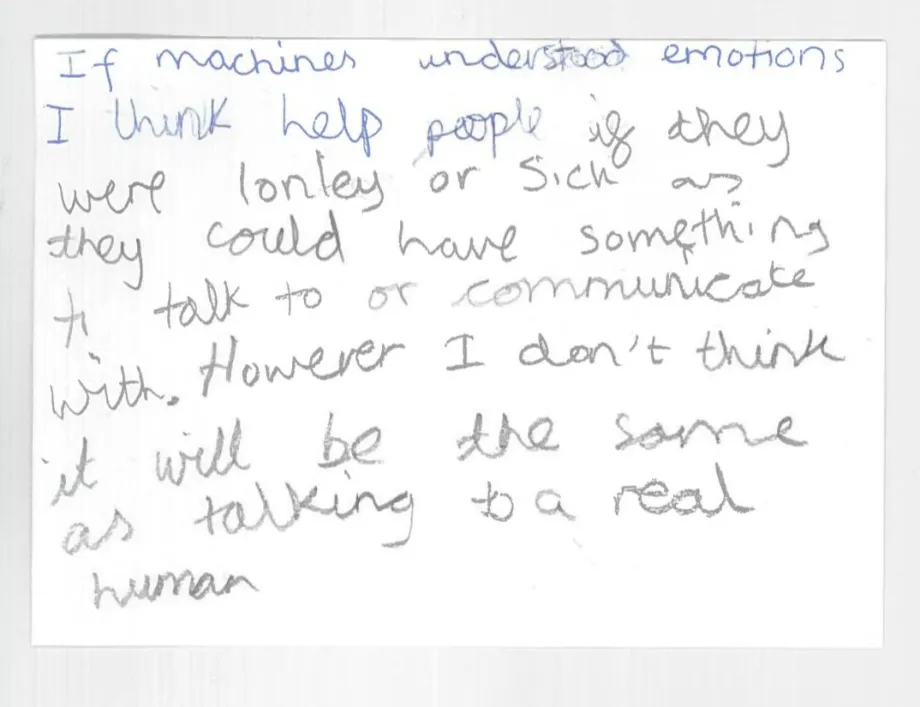 If machines understood emotions
I think help people if they
were lonley or sick as
they could have something
to talk to or communicate
with. However I don't think
it will be the same
as talking to a real
human